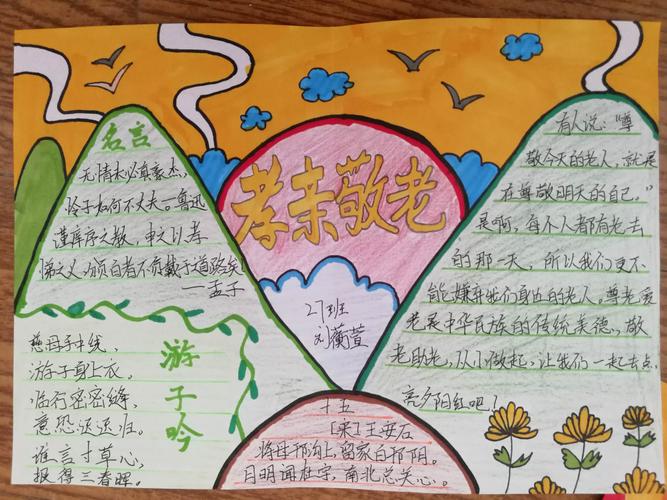 孝亲敬老
27班
刘蘅萱
名言
无情未必真豪杰,
怜子如何不丈夫。鲁迅
谨庠序之教,申之以孝
悌之义,颁白者不负戴于道路矣!
——孟子
游子吟
慈母手中线,
游子身上衣。
临行密密缝,
意恐迟迟归。
谁言寸草心,
报得三春晖。
十五
[宋]王安石
将母邗沟上,留家白邗阴。
月明闻杜宇,南北总关心。
有人说:“尊
敬今天的老人,就是
在尊敬明天的自己。”
是啊,每个人都有老去
的那一天,所以我们更不
能嫌弃我们身边的老人。尊老爱
老是中华民族的传统美德,敬
老助老,从小做起,让我们一起去点
亮夕阳红吧!